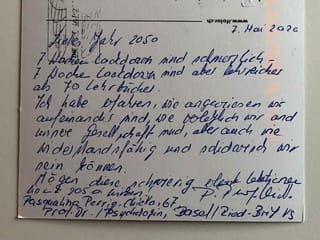 www.ilolar.ch
7. Mai 2020
Liebes Jahr 2050
7 Wochen Lockdown sind schmerzlich –
7 Wochen Lockdown sind aber lehrreicher
als 70 Lehrbücher.
Ich habe erfahren, wie angewiesen wir
aufeinander sind, wie verletzlich wir und
unsere Gesellschaft sind, aber auch wie
widerstandsfähig und solidarisch wir
sein können.
Mögen diese
2050
Pasqualina Perrig-Chiello, 67
Prof. Dr. / Psychologin, Basel / Ried-Brig VS